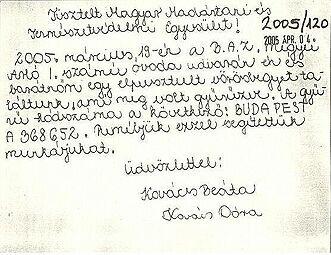 Tisztelt Magyar Madártani és
Természetvédelmi Egyesület!
2005/120
2005 APR. 04.
2005. március 19-én a B.A.Z. megyei
Arló 1. számú óvoda udvarán én és
barátnőm egy elpusztult vörösbegyet ta-
láltunk, ami meg volt gyűrűzve. A gyű-
rű kódszáma a következő: BUDAPEST
A 368652. Reméljük ezzel segítettük
munkájukat.
Üdvözlettel:
Kovács Beáta
Kovács Dóra